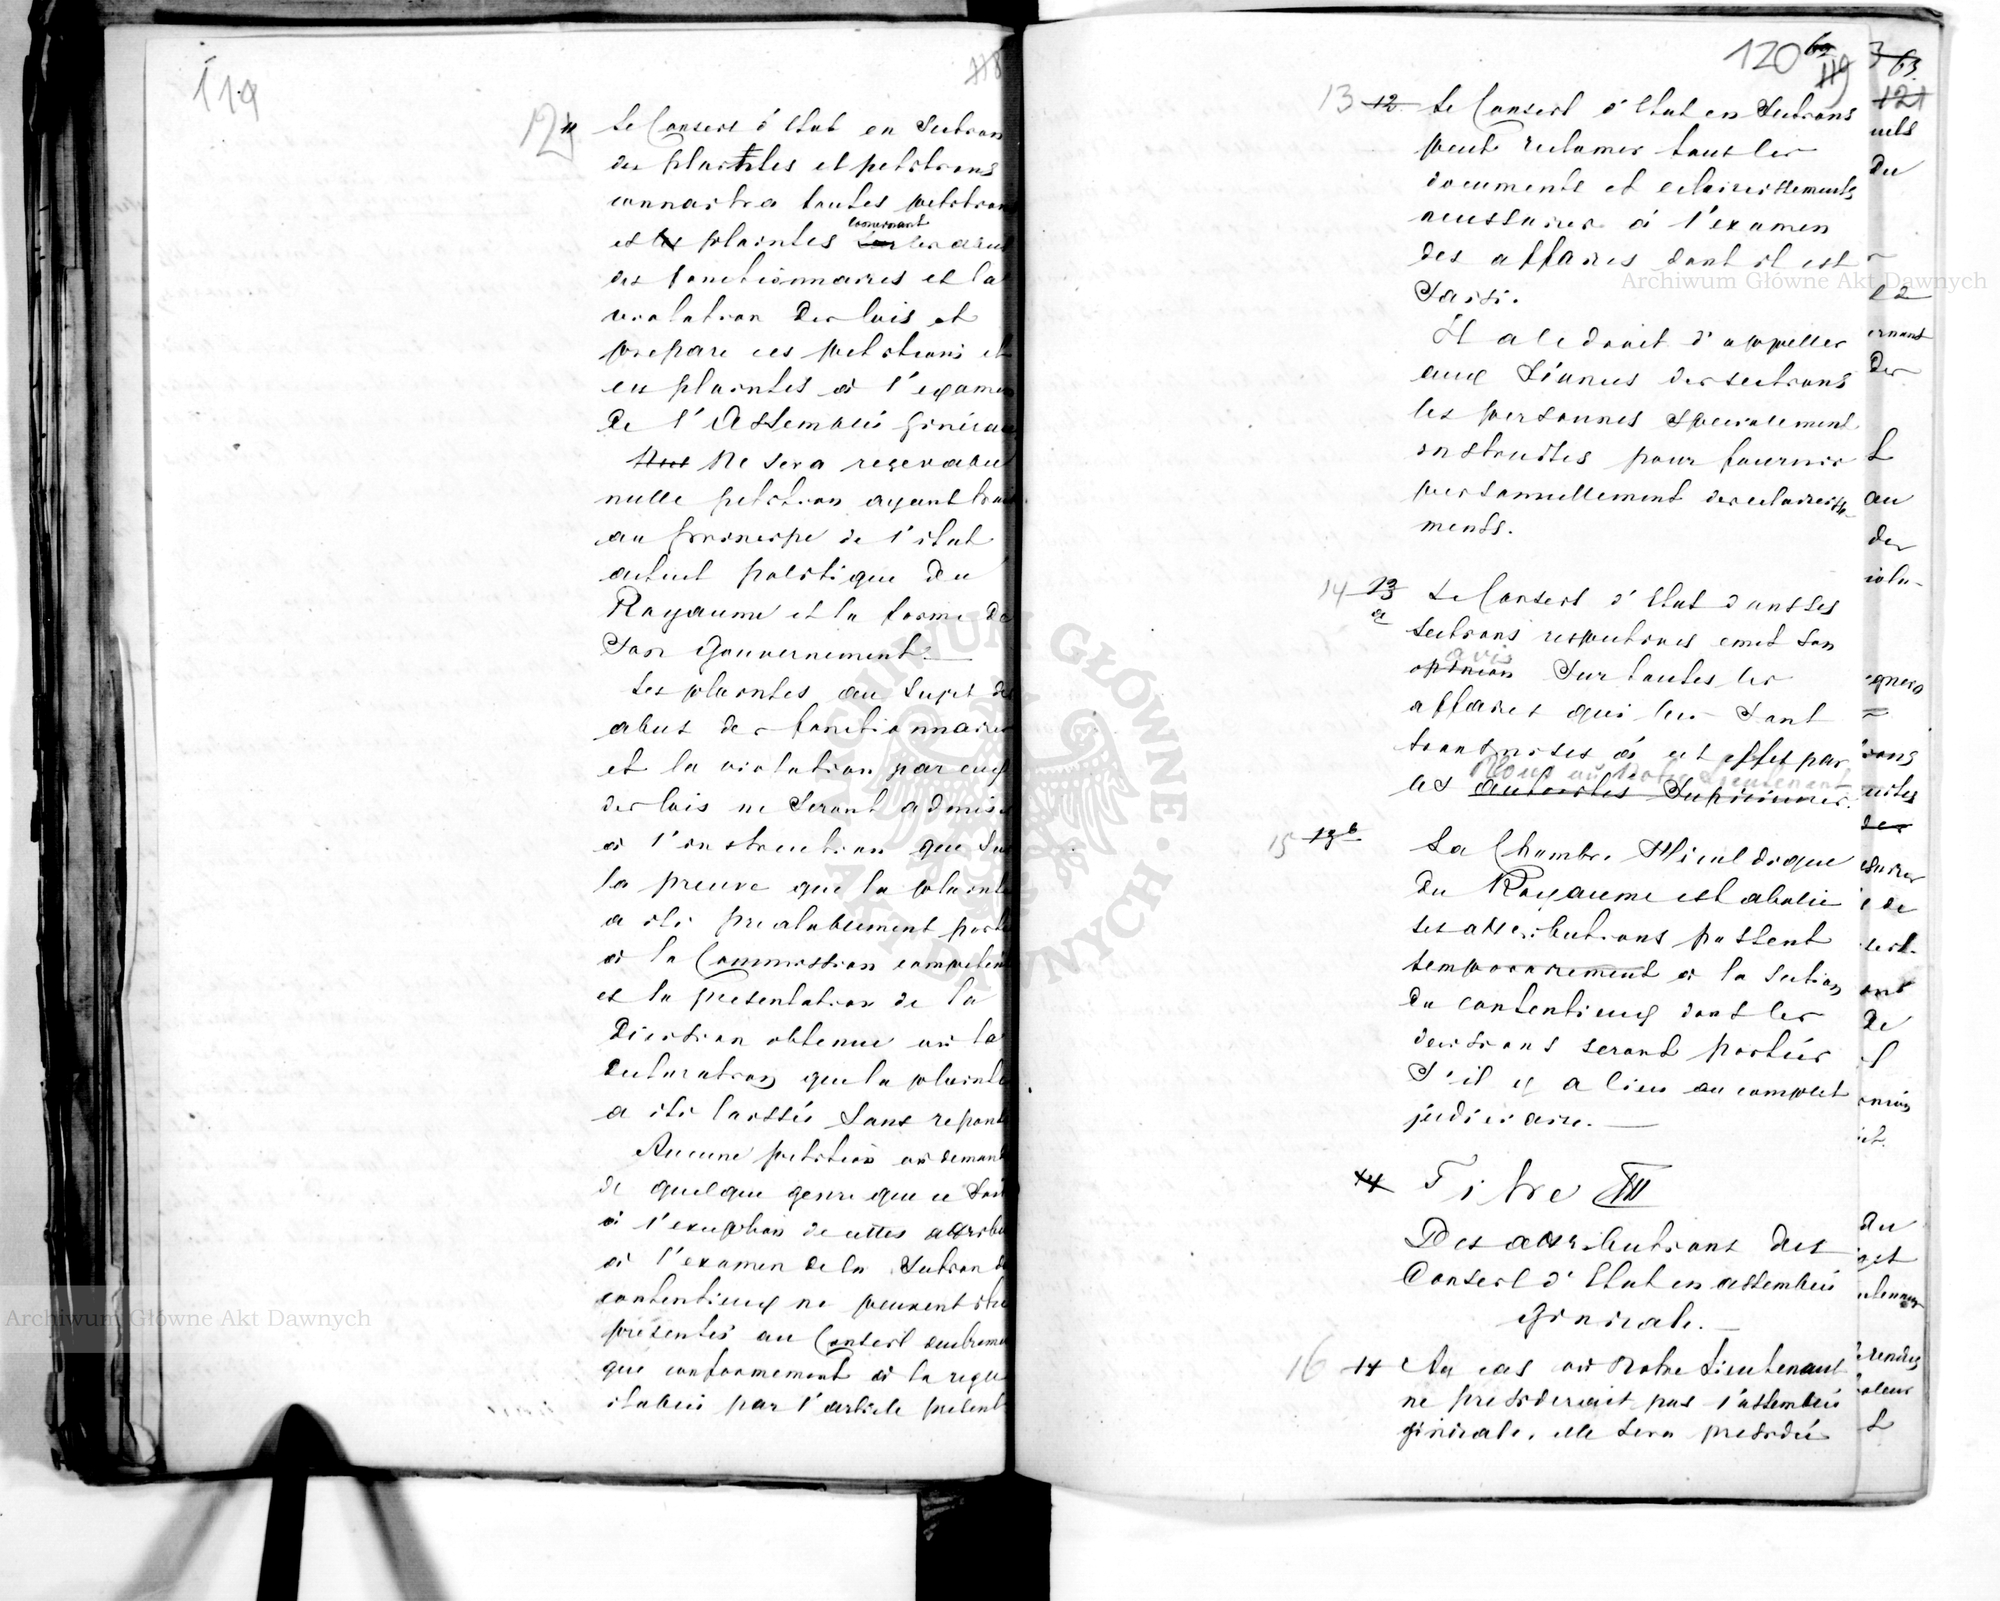 119
118
12
Le Conseil d'Etat en Section
des plaintes et petitions
connaitra toutes petitions
et plaintes concernant les abus
des fonctionnaires et la
violation des lois et
prepare ces petitions et
ces plaintes à l'examen
de l'Assemblée générale
Ne sera recevable
nulle petition ayant trait
au principe de l'état
actuel politique du
Royaume et la forme de
Son Gouvernement. —
Les plaintes au sujet des
abus des fonctionnaires
et la violation par eux
des lois ne seront admises
à l'instruction que sur
la preuve que la plainte
a été prealablement portée
à la Commission competente
et la presentation de la
Décision obtenue ou la
Declaration que la plainte
a été laissée sans reponse
Aucune petition ou demande
de quelque genre que ce soit
à l'exception de celles attribuées
à l'examen de la Section du
contentieux ne peuvent être
présentés au Conseil autrement
que conformement à la regle
établie par l'article présent
120
119
13 12 Le Conseil d'Etat en Sections
peut reclamer tout les
documents et eclaircissements
necessaires à l'examen
des affaires dont il est
Saisi.
Il a le droit d'appeller
aux Séances des sections
les personnes specialement
instruites pour fournir
personnellement des eclaircisse-
ments.
14 13 a Le Conseil d'Etat dans ses
sections respectives emet son
opinion avis Sur toutes les
affaires qui leur sont
transmises à cet effet par
Nous ou Notre Lieutenant
les autorités Supérieures.
15 13 b La Chambre Héraldique
du Royaume est abolie
ses attributions passent
temporairement à la Section
du contentieux dont les
decisions seront portées
S'il y a lieu au complet
judiciaire. —
14 Titre III
Des attributions des
Conseil d'Etat en assemblée
générale. —
16 14 Au cas où Notre Lieutenant
ne presiderait pas l'assemblée
générale, elle sera presidée
63
121
du
des
au
des
de
du
Archiwum Główne Akt Dawnych
Archiwum Główne Akt Dawnych
ARCHIWUM GŁÓWNE AKT DAWNYCH